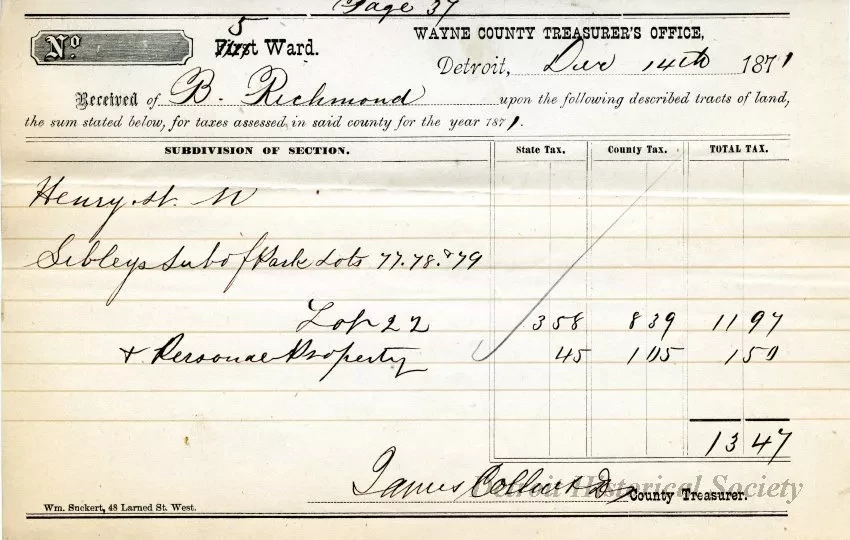 Page 37
Nº 5 First Ward. WAYNE COUNTY TREASURER'S OFFICE,
Detroit, Dec 14th 1871
Received of B. Richmond upon the following described tracts of land,
the sum stated below, for taxes assessed in said county for the year 1871.
SUBDIVISION OF SECTION. State Tax. County Tax. TOTAL TAX.
Henry St. N
Sibleys Sub of Park Lots 77.78.&79
Lot 22 3 58 8 39 11 97
& Personal Property 45 1 05 1 50
13 47
James Collins D County Treasurer.
Detroit Historical Society
Wm. Suckert, 48 Larned St. West.